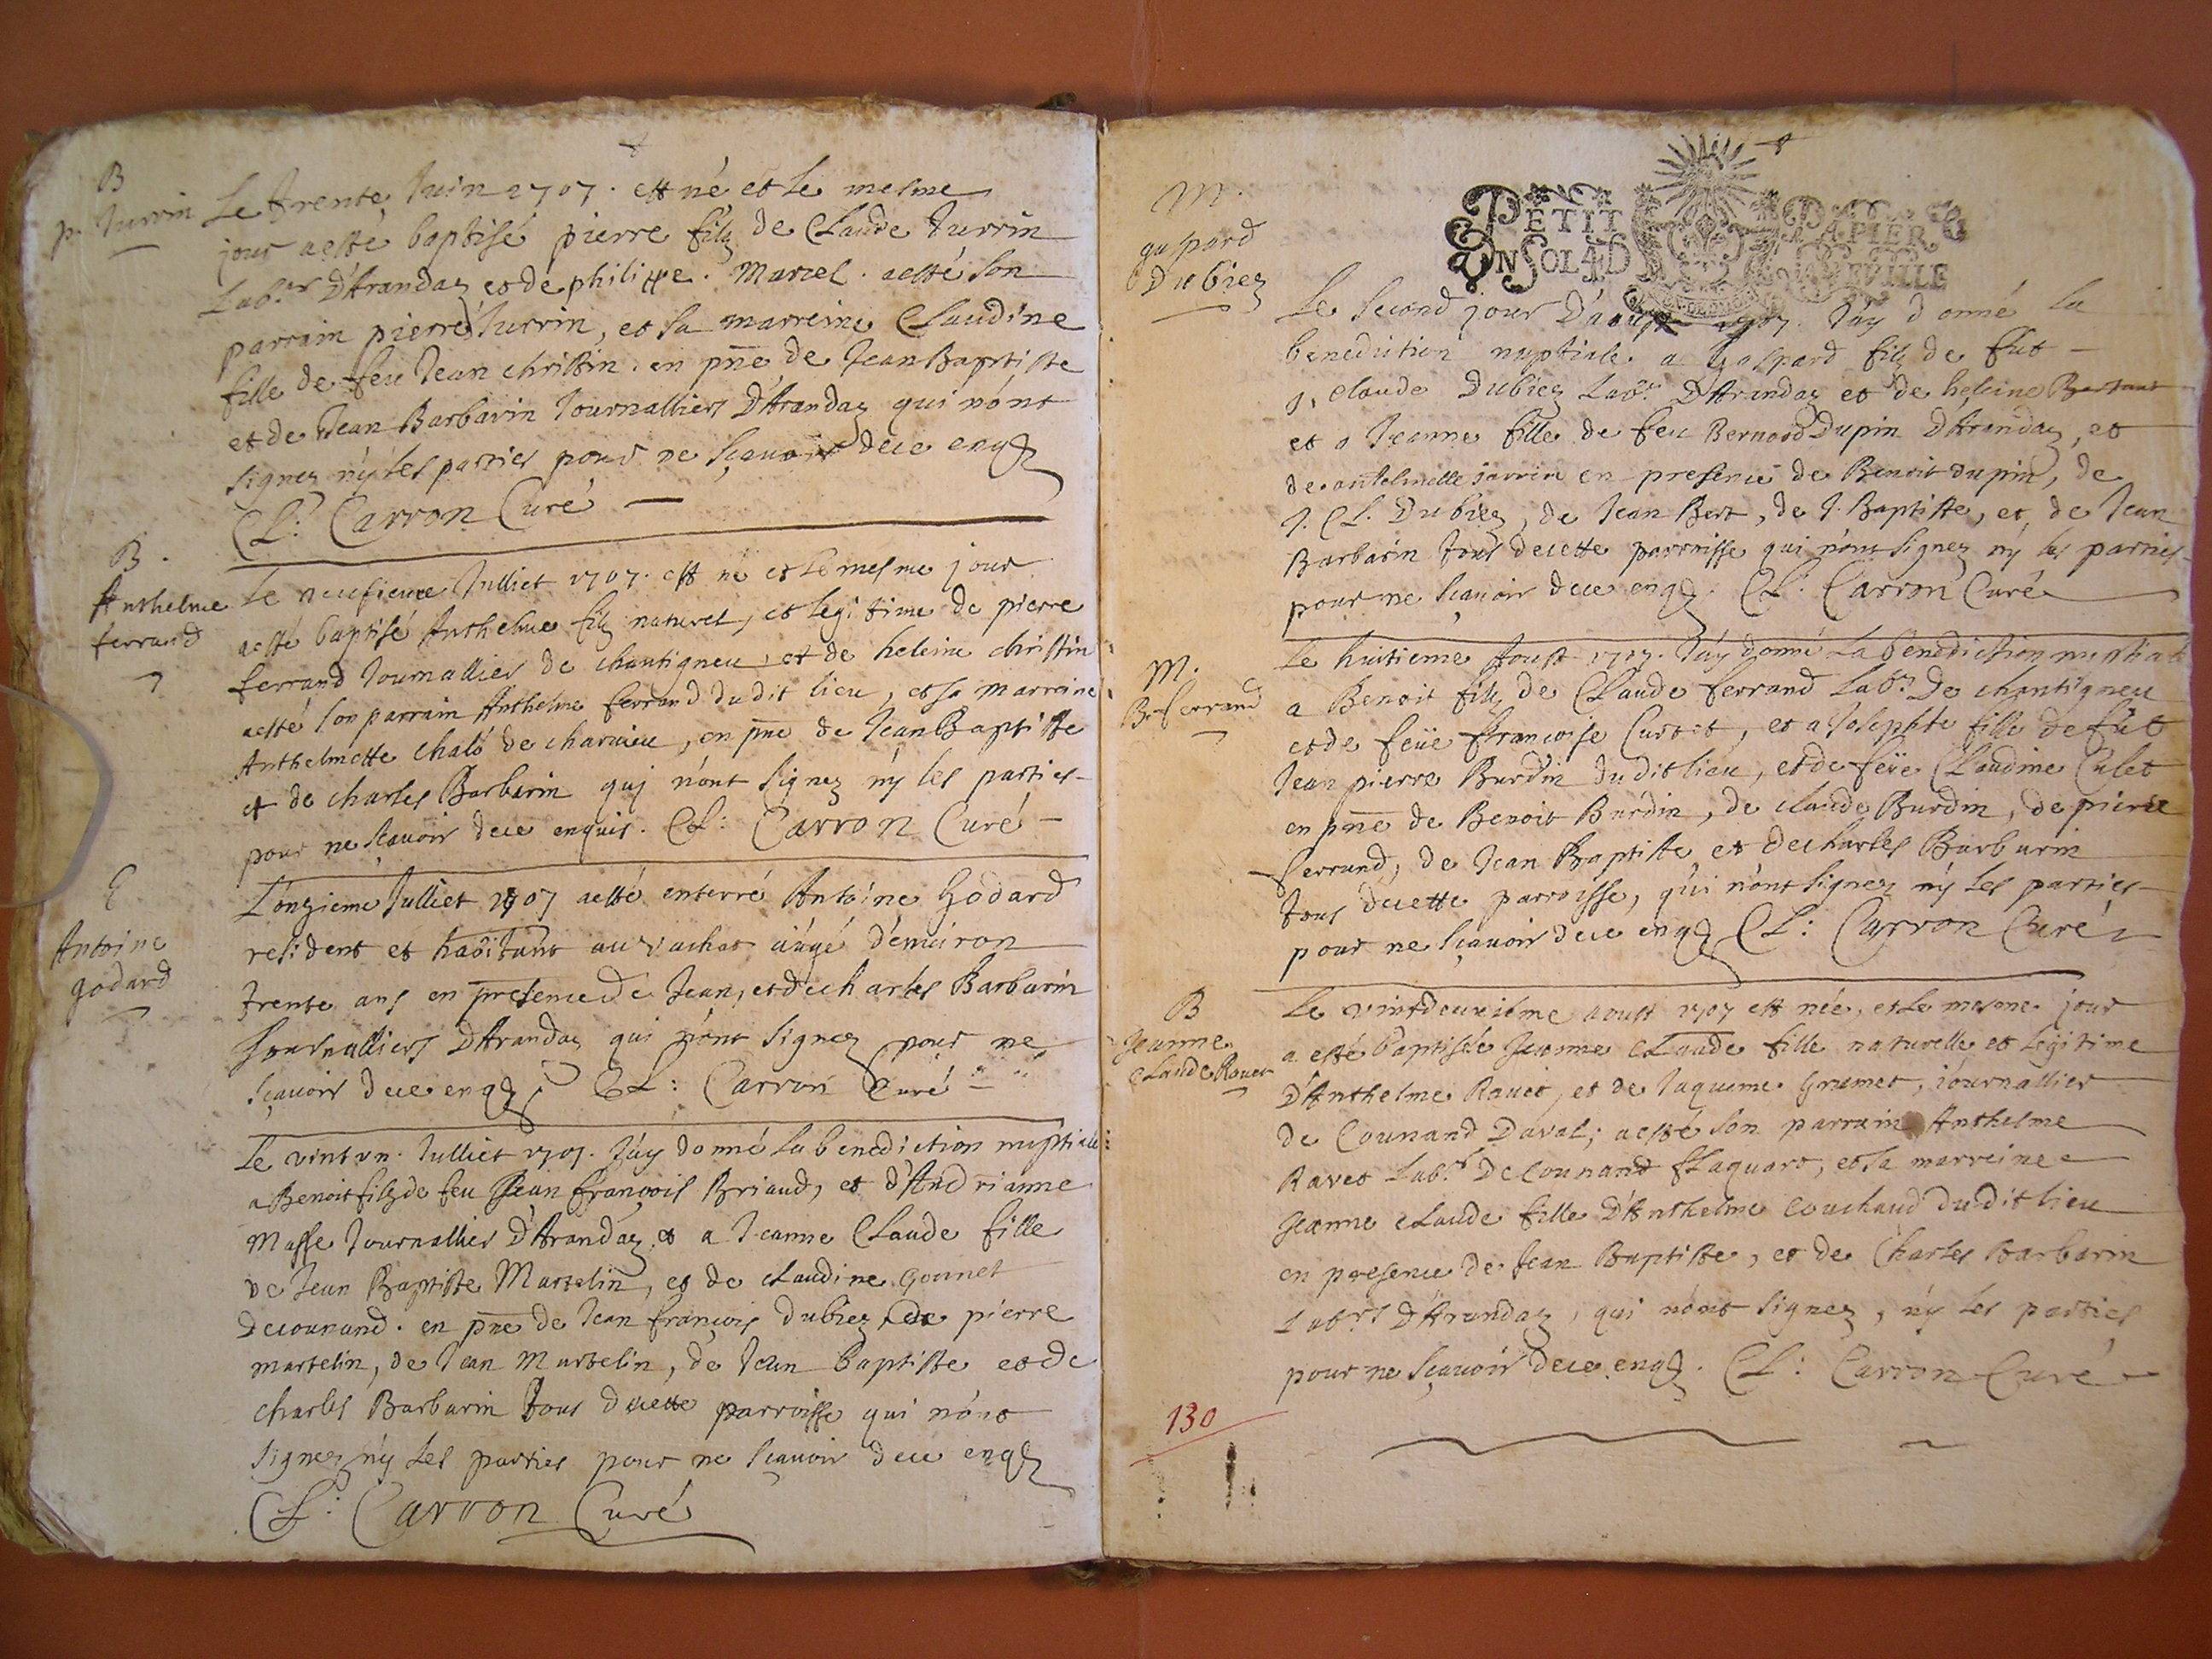 B
p. Jurrin
Le trente Juin 1707. est né et le mesme
jour aesté baptisé pierre filz de Claude Jurrin
Lab.r D'Arandaz et de philippe. Marcel. aesté son
parrain pierre Jurrin, et sa marreine Claudine
fille de feu Jean christin. en pñe de Jean Baptiste
et de Jean Barbarin Journalliers D'Arandaz qui n'ont
signez n'y les parties pour ne sçavoir dece enqz
Cl: Carron Curé
B.
Anthelme
ferrand
Le neufieme Julliet 1707. est né et le mesme jour
aesté baptisé Anthelme filz naturel, et legitime de pierre
ferrand Journallier de chantigneu, et de heleine christin
aesté son parrain Anthelme ferrand dudit lieu, et sa marreine
Anthelmette chalo de charvieu, en pñe de Jean Baptiste
et de charles Barbarin qui n'ont signez n'y les parties
pour ne sçavoir dece enquis. Cl: Carron Curé
E
Antoine
godard
L'onzieme Julliet 1707 aesté enterré Antoine Godard
resident et habitant au vachat aágé d'enuiron
trente ans en presence de Jean, et de charles Barbarin
Journalliers D'Arandaz qui n'ont signez pour ne
sçavoir dece enqz Cl: Carron Curé
Le vint vn. Julliet 1707. J'ay donné la benediction nuptiale
a Benoit filz de feu Jean françois Briaud, et d'Andrianne
Masse Journallier D'Arandaz et a Jeanne Claude fille
de Jean Baptiste Martelin, et de claudine Gonnet
decounand. en pñe de Jean françois Dubiez, de pierre
martelin, de Jean Martelin, de Jean baptiste et de
charles Barbarin tous decette parroisse qui n'ont
signez n'y les parties pour ne sçavoir dece enqz
Cl: Carron Curé
M.
gaspard
Dubiez
PETIT PAPIER
UN SOL 4 D LA FEUILLE
Le second jour D'aoust 1707. J'ay donné la
benediction nuptiale a Gaspard filz de fut
J. claude Dubiez Lab.r D'Arandaz et de heleine
et a Jeanne fille de feu Bernard Dupin D'Arandaz, et
de antelmette jarrin en presence de Benoit dupin, de
J. Cl. Dubiez, de Jean Bert, de J. Baptiste, et de Jean
Barbarin tous decette parroisse qui n'ont signez n'y les parties
pour ne sçavoir dece enqz. Cl. Carron Curé
M.
B. ferrand
Le huitieme Aoust 1707. J'ay donné la benediction nuptiale
a Benoit filz de Claude ferrand Lab.r De chantigneu
et de feüe françoise Curtet, et a Josephte fille de fut
Jean pierre Burdin dudit lieu, et de feüe Claudine Culet
en pñe de Benoit Burdin, de claude Burdin, de pierre
ferrand, de Jean Baptiste et de charles Barbarin
tous decette parroisse, qui n'ont signez n'y les parties
pour ne sçavoir dece enqz Cl: Carron Curé
B
Jeanne
Claude Ravet
Le vintdeuxieme aoust 1707 est née, et le mesme jour
a esté baptisée Jeanne Claude fille naturelle et legitime
D'Anthelme Ravet, et de Jaqueme Grumet, journallier
de Counand Daval; aesté son parrain Anthelme
Ravet Lab.r De Counand flaquart, et sa marreine
Jeanne Claude fille D'Anthelme couchaud dudit lieu
en presence de Jean Baptiste, et de Charles Barbarin
Lab.rs D'Arandaz, qui n'ont signez, n'y les parties
pour ne sçavoir dece enqz. Cl: Carron Curé
130